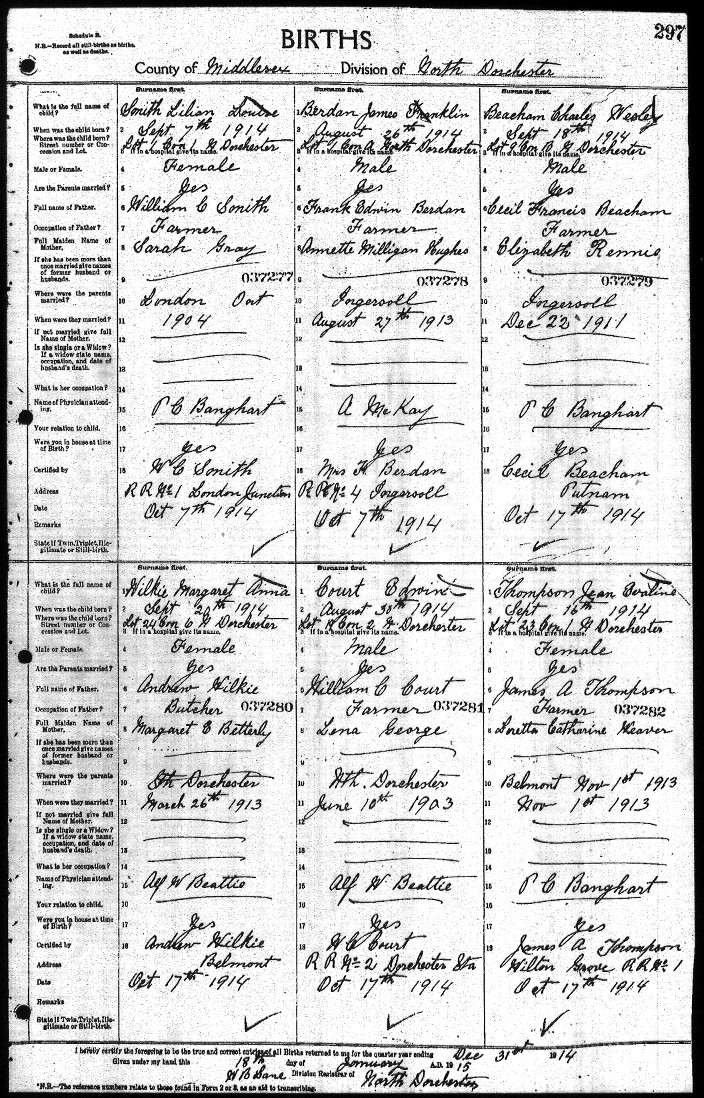 Schedule B.
N.B.—Record all still-births as births, as well as deaths.
BIRTHS
297
County of Middlesex Division of North Dorchester
Surname first. Surname first. Surname first.
What is the full name of child? Smith Lilian Louise Berdan James Franklin Beacham Charles Wesley
When was the child born? 2 Sept 7th 1914 2 August 26th 1914 2 Sept 18th 1914
Where was the child born? Street number or Concession and Lot. Lot 1 Con 1 N Dorchester Lot 1 Con A North Dorchester Lot 9 Con A N Dorchester
If in a hospital give its name. If in a hospital give its name. If in a hospital give its name.
Male or Female. 4 Female 4 Male 4 Male
Are the Parents married? 5 Yes 5 Yes 5 Yes
Full name of Father. 6 William C Smith 6 Frank Edwin Berdan 6 Cecil Francis Beacham
Occupation of Father? 7 Farmer 7 Farmer 7 Farmer
Full Maiden Name of Mother. 8 Sarah Gray 8 Annette Milligan Hughes 8 Elizabeth Rennie
If she has been more than once married give names of former husband or husbands. 9 037277 9 037278 9 037279
Where were the parents married? 10 London Ont 10 Ingersoll 10 Ingersoll
When were they married? 11 1904 11 August 27th 1913 11 Dec 22 1911
If not married give full Name of Mother. 12 12 12
Is she single or a Widow? If a widow state name, occupation, and date of husband's death. 13 13 13
What is her occupation? 14 14 14
Name of Physician attending. 15 P C Banghart 15 A McKay 15 P C Banghart
Your relation to child. 16 16 16
Were you in house at time of Birth? 17 Yes 17 Yes 17 Yes
Certified by 18 W C Smith 18 Mrs F. Berdan 18 Cecil Beacham
Address R R No 1 London Junction R R No 4 Ingersoll Putnam
Date Oct 7th 1914 Oct 7th 1914 Oct 17th 1914
Remarks
State if Twin, Triplet, Illegitimate or Still-birth.
Surname first. Surname first. Surname first.
What is the full name of child? 1 Wilkie Margaret Anna 1 Court Edwin 1 Thompson Jean
When was the child born? 2 Sept 20th 1914 2 August 30th 1914 2 Sept 16th 1914
Where was the child born? Street number or Concession and Lot. Lot 24 Con 6 N Dorchester Lot 18 Con 2 N Dorchester Lot 23 Con 1 N Dorchester
If in a hospital give its name. If in a hospital give its name. If in a hospital give its name.
Male or Female. 4 Female 4 Male 4 Female
Are the Parents married? 5 Yes 5 Yes 5 Yes
Full name of Father. 6 Andrew Wilkie 6 William C Court 6 James A Thompson
Occupation of Father? 7 Butcher 037280 7 Farmer 037281 7 Farmer 037282
Full Maiden Name of Mother. 8 Margaret E Betterly 8 Lena George 8 Loretta Catharine Weaver
If she has been more than once married give names of former husband or husbands. 9 9 9
Where were the parents married? 10 Sth Dorchester 10 Nth. Dorchester 10 Belmont Nov 1st 1913
When were they married? 11 March 26th 1913 11 June 10th 1903 11 Nov 1st 1913
If not married give full Name of Mother. 12 12 12
Is she single or a Widow? If a widow state name, occupation, and date of husband's death. 13 13 13
What is her occupation? 14 14 14
Name of Physician attending. 15 Alf W Beattie 15 Alf W Beattie 15 P C Banghart
Your relation to child. 16 16 16
Were you in house at time of Birth? 17 Yes 17 Yes 17 Yes
Certified by 18 Andrew Wilkie 18 W C Court 18 James A Thompson
Address Belmont R R No 2 Dorchester Sta Wilton Grove R R No 1
Date Oct 17th 1914 Oct 17th 1914 Oct 17th 1914
Remarks
State if Twin, Triplet, Illegitimate or Still-birth.
I hereby certify the foregoing to be the true and correct entries of all Births returned to me for the quarter year ending Dec 31st 1914
Given under my hand this 18th day of January A.D. 1915
W B Lane Division Registrar of North Dorchester
*N.B.—The reference numbers relate to those found in Form 2 or 3, as an aid to transcribing.